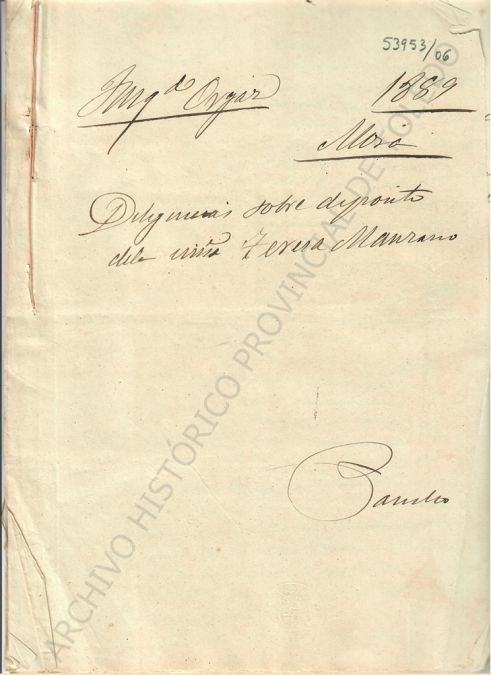 53953/06
Juzgdo Orgaz 1889
Mora
Diligencias sobre deposito
dela niña Teresa Manzano
ARCHIVO HISTÓRICO PROVINCIAL DE TOLEDO